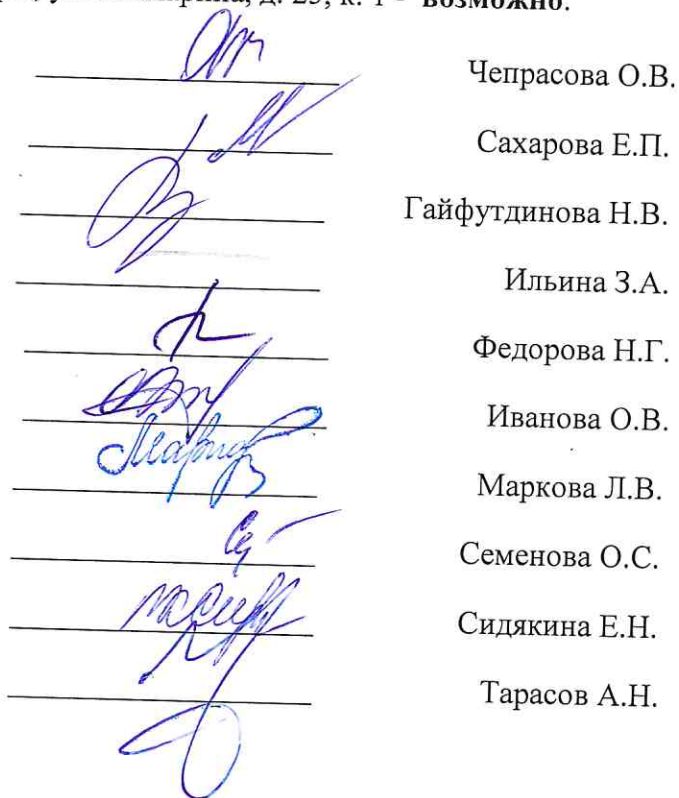 д. 25, к. 1 - возможно.
Чепрасова О.В.
Сахарова Е.П.
Гайфутдинова Н.В.
Ильина З.А.
Федорова Н.Г.
Иванова О.В.
Маркова Л.В.
Семенова О.С.
Сидякина Е.Н.
Тарасов А.Н.